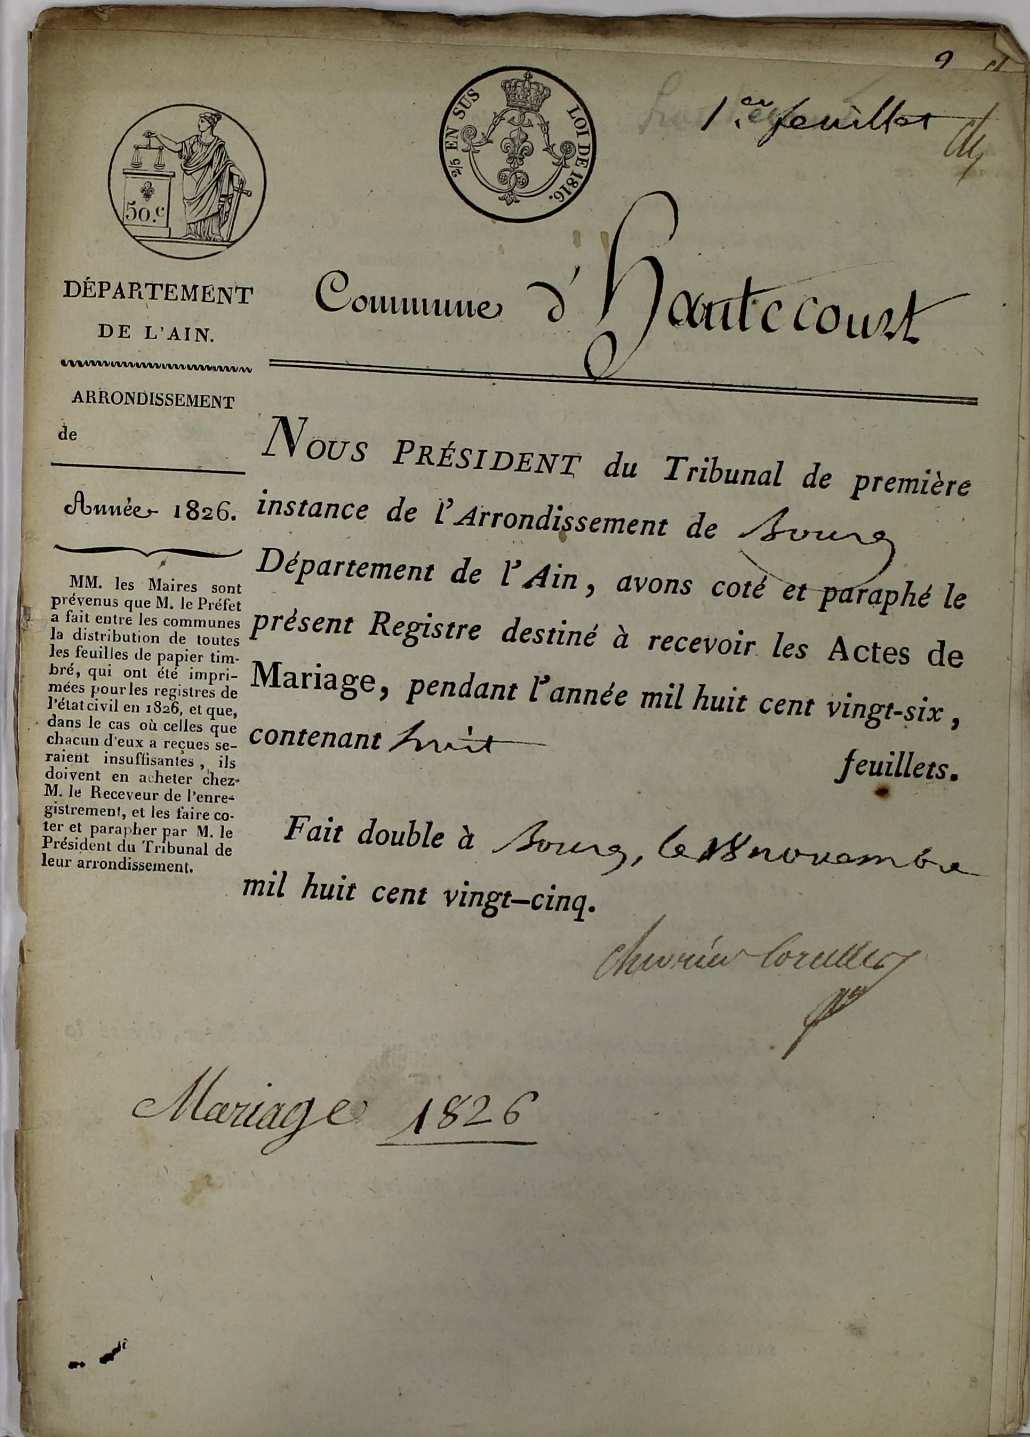 1.er feuillet
2/5 EN SUS
LOI DE 1816.
50.c
DÉPARTEMENT
DE L'AIN.
Commune d'Hautecourt
ARRONDISSEMENT
de
Année 1826.
MM. les Maires sont
prévenus que M. le Préfet
a fait entre les communes
la distribution de toutes
les feuilles de papier tim-
bré, qui ont été impri-
mées pour les registres de
l'état civil en 1826, et que,
dans le cas où celles que
chacun d'eux a reçues se-
raient insuffisantes, ils
doivent en acheter chez
M. le Receveur de l'enre-
gistrement, et les faire co-
ter et parapher par M. le
Président du Tribunal de
leur arrondissement.
NOUS PRÉSIDENT du Tribunal de première
instance de l'Arrondissement de Bourg
Département de l'Ain, avons coté et paraphé le
présent Registre destiné à recevoir les Actes de
Mariage, pendant l'année mil huit cent vingt-six,
contenant huit feuillets.
Fait double à Bourg, le 18 novembre
mil huit cent vingt-cinq.
Mariage 1826